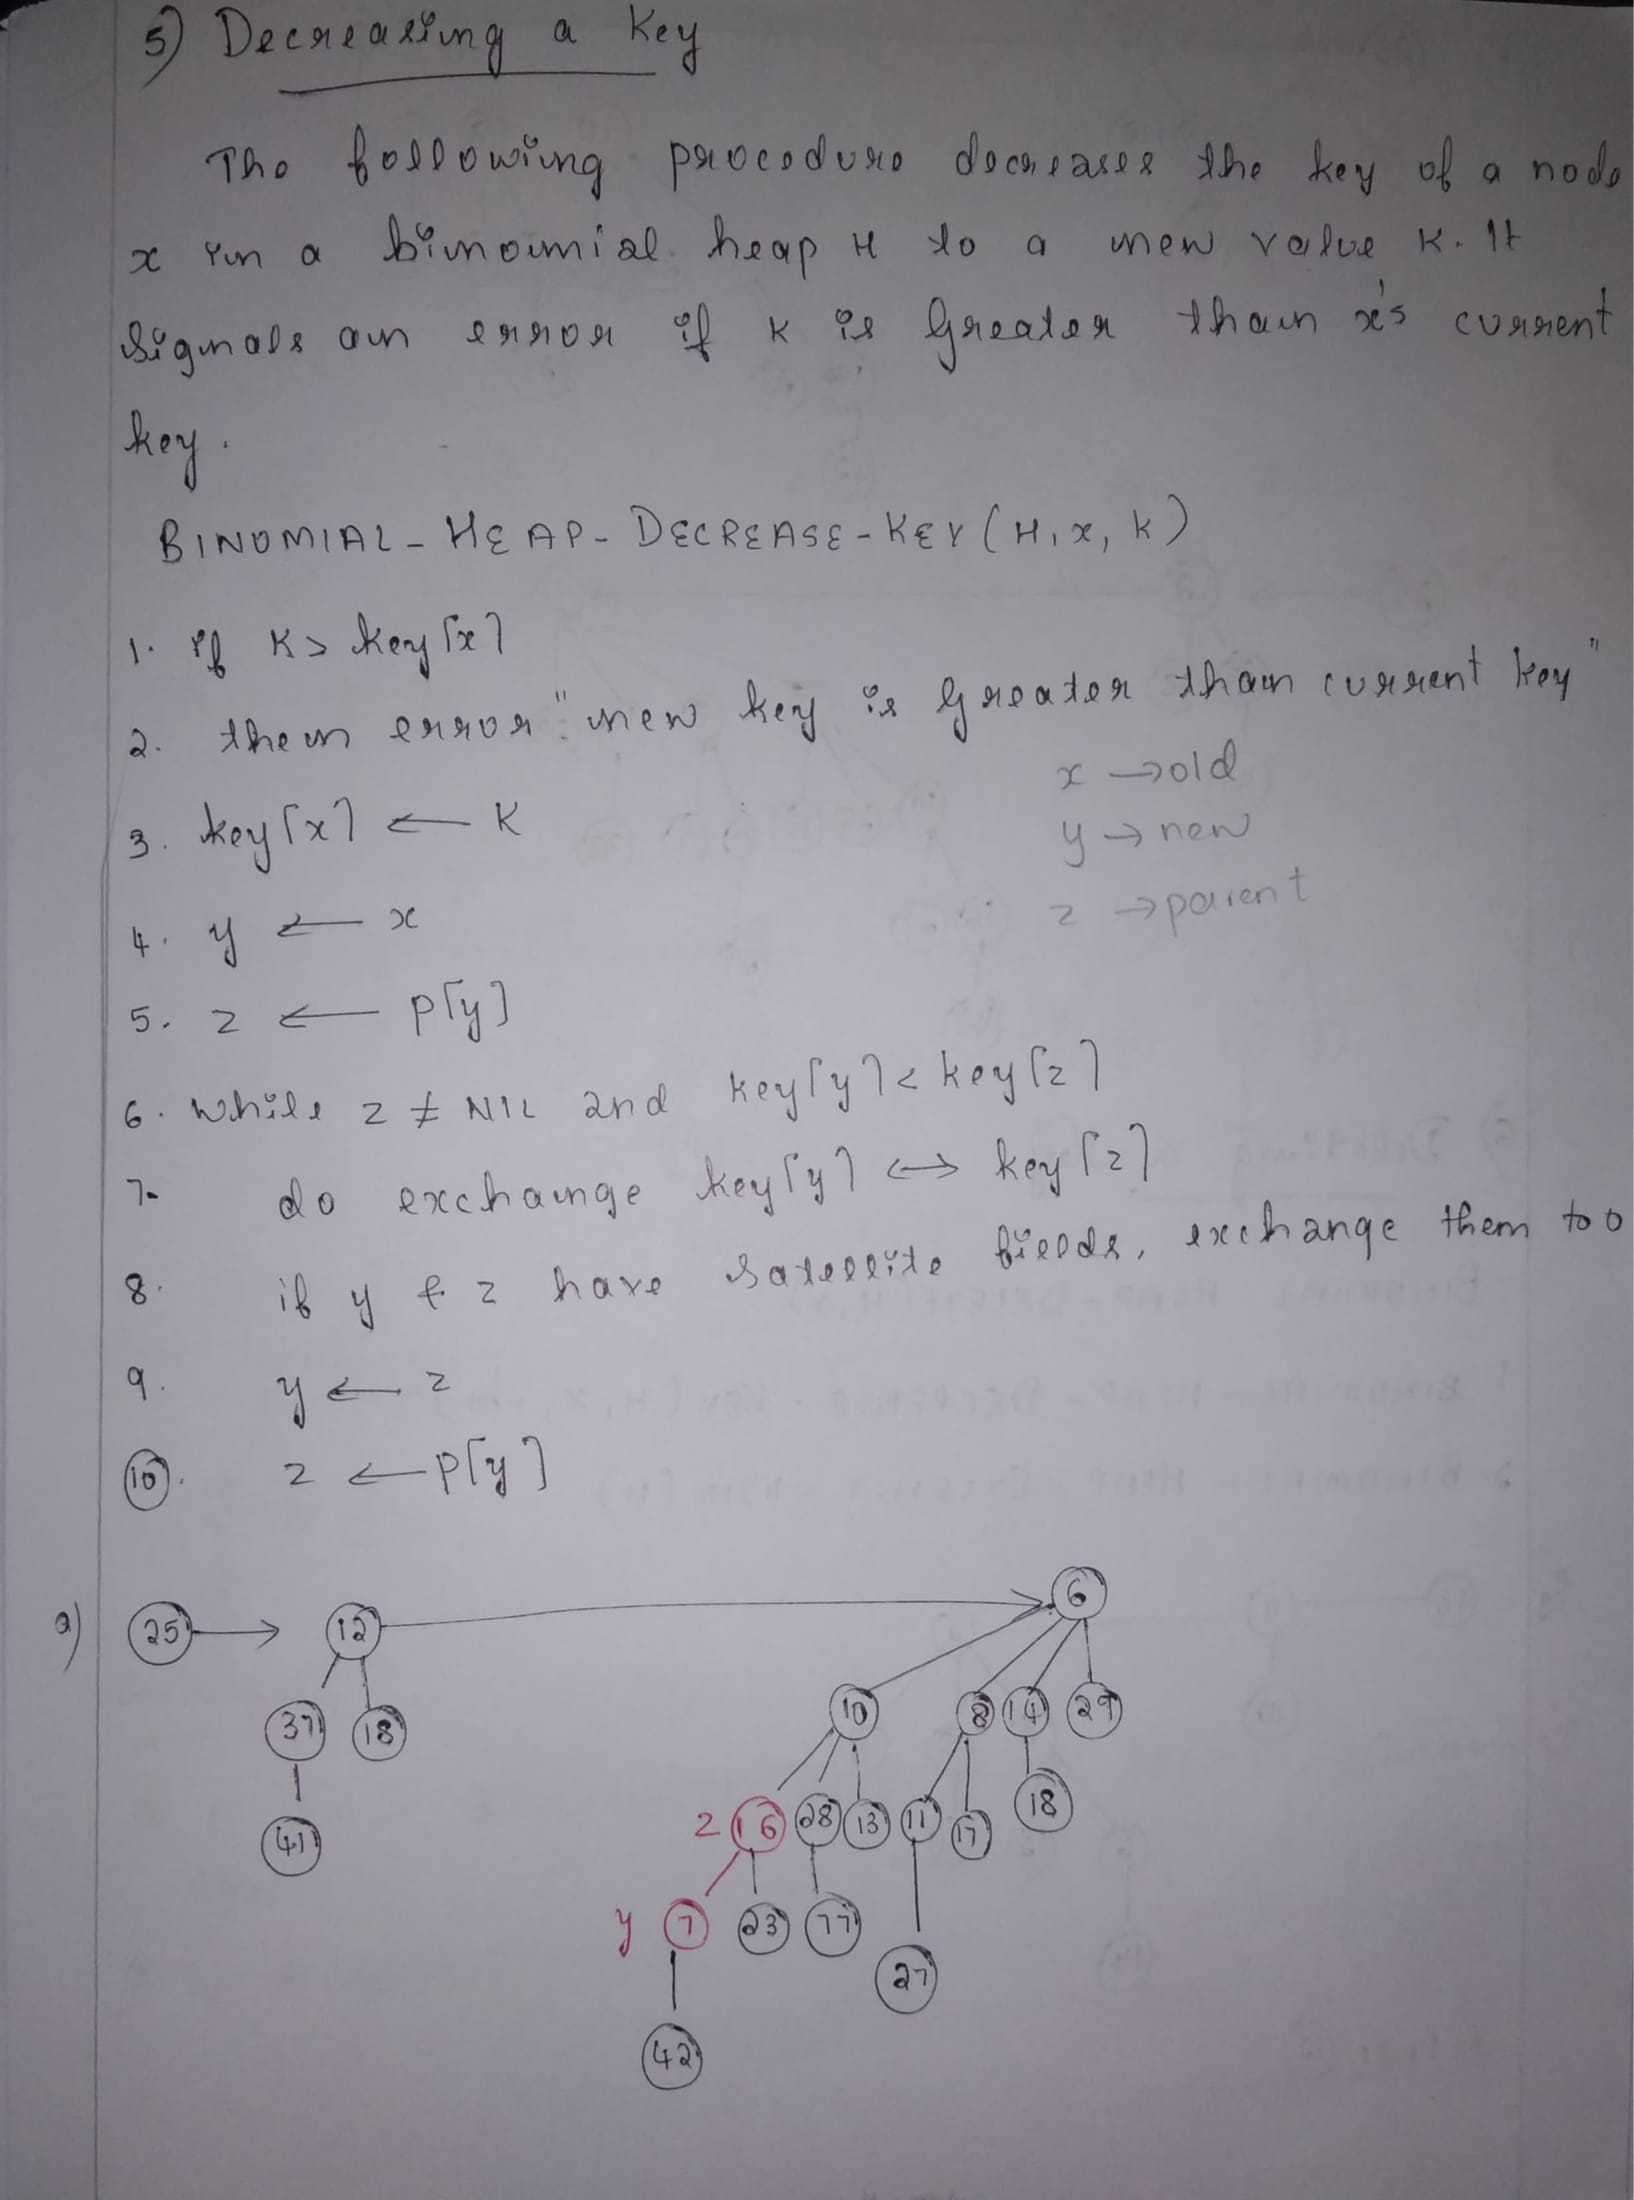 5) Decreasing a key
The following procedure decreases the key of a node
x in a binomial heap H to a new value K. It
signals an error if K is Greater than x's current
key.
BINOMIAL-HEAP-DECREASE-KEY(H,x,K)
1. if K > key[x]
2. then error "new key is Greater than current key"
x → old
3. key[x] ← K
y → new
4. y ← x
z → parent
5. z ← p[y]
6. while z ≠ NIL and key[y] < key[z]
7. do exchange key[y] ↔ key[z]
8. if y & z have satellite fields, exchange them too
9. y ← z
10. z ← p[y]
a) 25 → 12 → 6
37 18 10 8 14 29
41 z 16 28 13 11 17 18
y 7 23 77 27
42